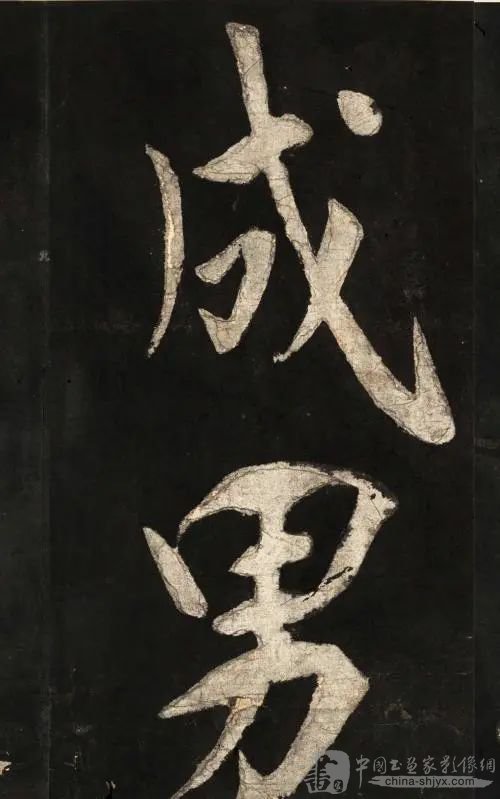 成
男
中国书画家影像网
china-shjyx.com